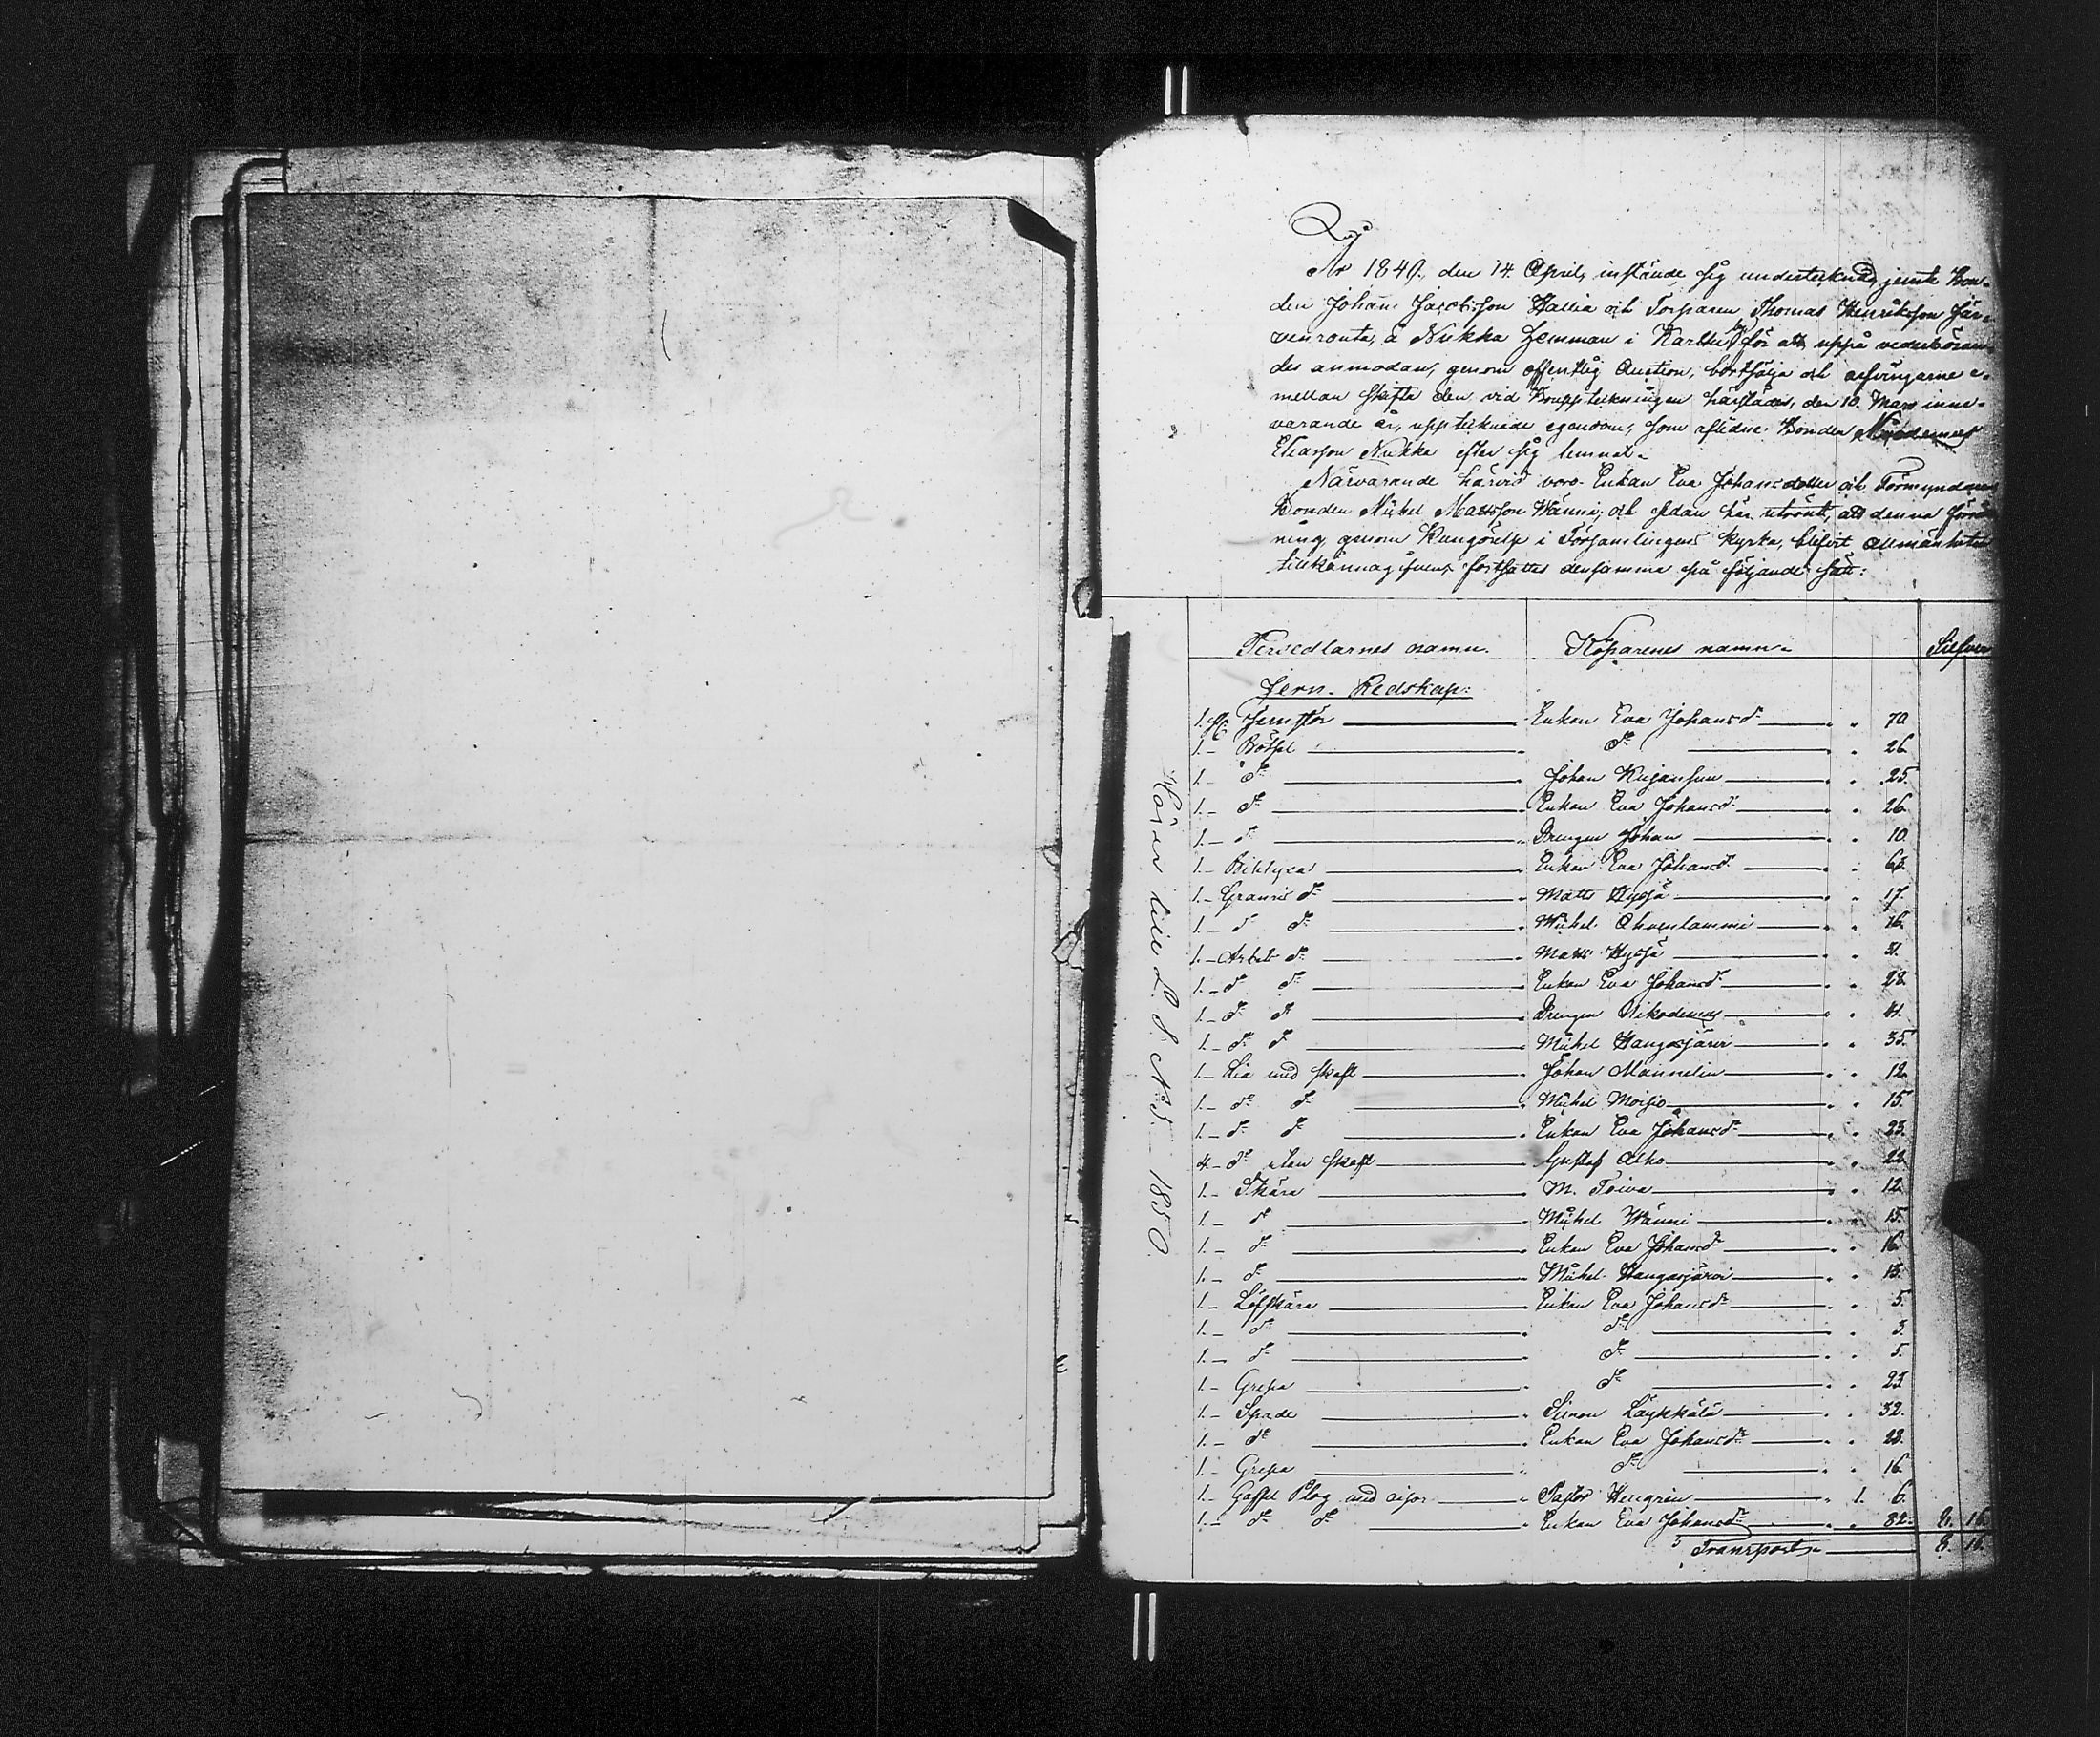 År 1849, den 14 April, instände sig undertecknad, jemte Bon-
den Johan Jacobsson Wallia och Torparen Thomas Henriksson Jär-
venranta, å Nukka Hemman i Karttu by för att uppå vederböran-
des anmodan, genom offentlig Auction, bortsälja och arfvingarne e-
mellan skifta den vid Boupptekningen härstädes, den 10 Mars inne-
varande år, upptecknade egendom, som aflidne Bonden Nikodemus
Eliasson Nukka efter sig lemnat.
Närvarande härvid voro Enkan Eva Johansdotter och Förmyndaren
Bonden Michel Mattsson Wänni; och sedan här utrönt, att denna förrätt
ning genom Kungörelse i Församlingens kyrka, blifvit Allmänheten
tillkännagifven, fortsattes densamma på följande sätt:
Persedlarnes namn. Köparenes namn. Silfver
Jern-Redskap:
1. st. Jernstör Enkan Eva Johansdr 70
1.- Bötsel dr 26
1.- dr Johan Kujansuu 25.
1.- dr Enkan Eva Johansdr 26.
1.- dr Drengen Johan 10
1.- Bihlyxa Enkan Eva Johansdr 63.
1.- dr Matts Hyrjä 17.
1.- dr dr Michel Ahvenlammi 16.
1.- Arbets dr Matts Hyrjä 31.
1.- dr dr Enkan Eva Johansdr 28
1.- dr dr Drengen Nikodemus 41.
1.- dr dr Michel Hangasjärvi 35.
1.- Lia med skaft Johan Mannelin 12
1.- dr dr Michel Moisio 15.
1.- dr dr Enkan Eva Johansdr 23.
4.- dr utan skaft Gustaf Alho 22
1.- Skära M. Toiva 12
1.- dr Michel Wänni 15.
1.- dr Enkan Eva Johansdr 16
1.- dr Michel Hangasjärvi 13.
1.- Löfskära Enkan Eva Johansdr 5
1.- dr dr 3.
1.- dr dr 5.
1.- Grepa dr 23
1.- Spade Simon Läykkälä 32.
1.- dr Enkan Eva Johansdr 28.
1.- Grepa dr 16.
1.- Gaffel Plog med Pastor Hengrén 1. 6.
1.- dr dr Enkan Eva Johansdr 82. 8. 16
Transport 8. 16.
Hörer till L. S. No 5. 1850.